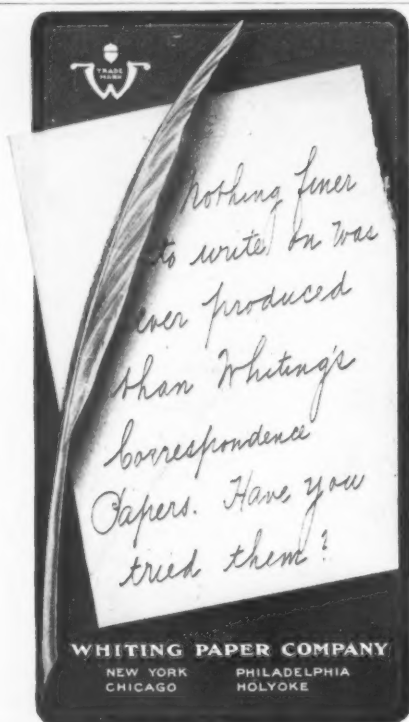 TRADE
MARK
W
Nothing finer
to write on was
ever produced
than Whiting's
Correspondence
Papers. Have you
tried them?
WHITING PAPER COMPANY
NEW YORK PHILADELPHIA
CHICAGO HOLYOKE